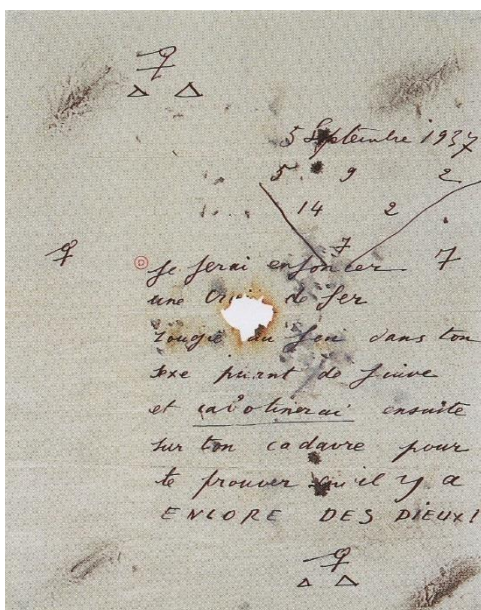 5 Septembre 1937
5 9 2
14 2
7 7
Je ferai enfoncer
une de fer
rougie au feu dans ton
sexe puant de Juive
et cabotinerai ensuite
sur ton cadavre pour
te prouver qu'il y a
ENCORE DES DIEUX!